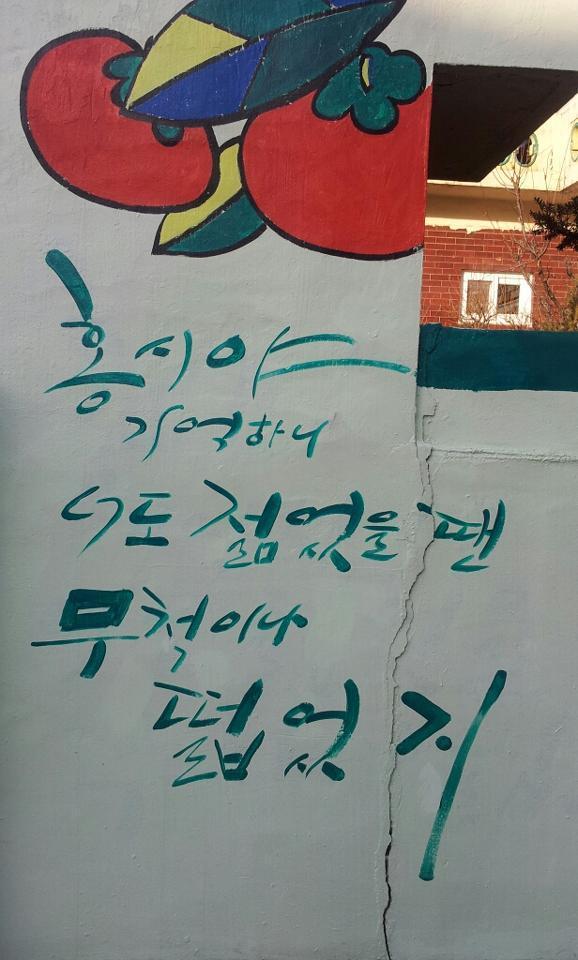 홍시야
기억하니
너도 젊었을 땐
무척이나
떫었지